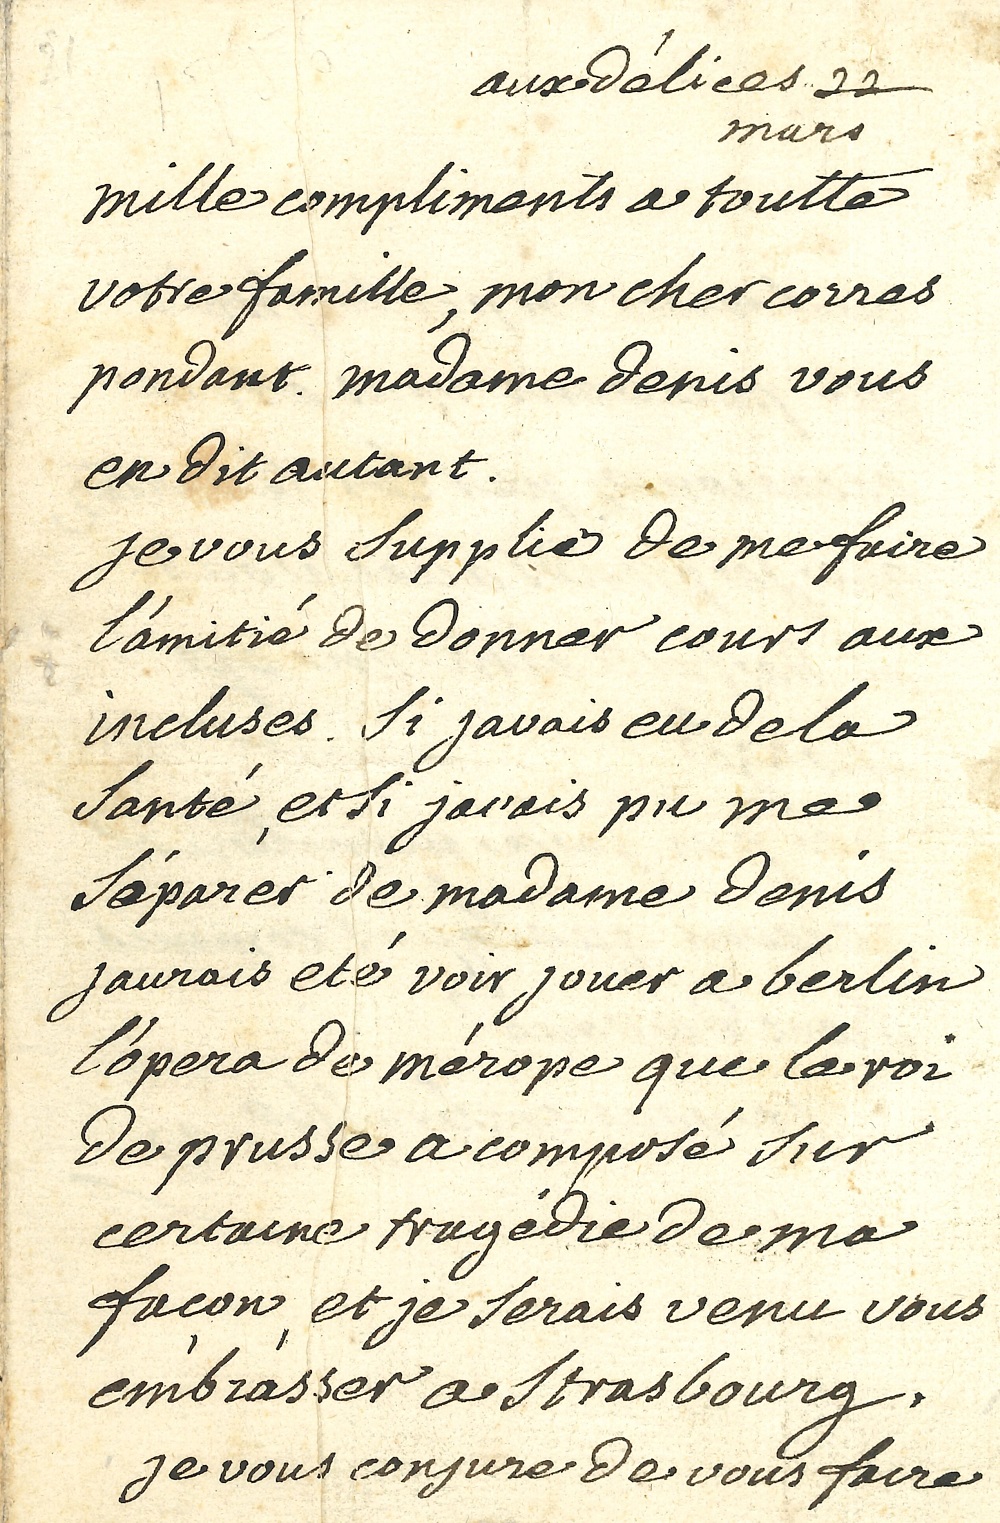 aux délices 22
mars
mille compliments a toutte
votre famille, mon cher corres
pondant. madame denis vous
en dit autant.
je vous supplie de me faire
l'amitié de donner cours aux
incluses. si javais eu de la
santé, et si javais pu me
séparer de madame denis
jaurais eté voir jouer a berlin
l'opera de mérope que le roi
de prusse a composé sur
certaine tragédie de ma
facon, et je serais venu vous
embrasser a strasbourg.
je vous conjure de vous faire